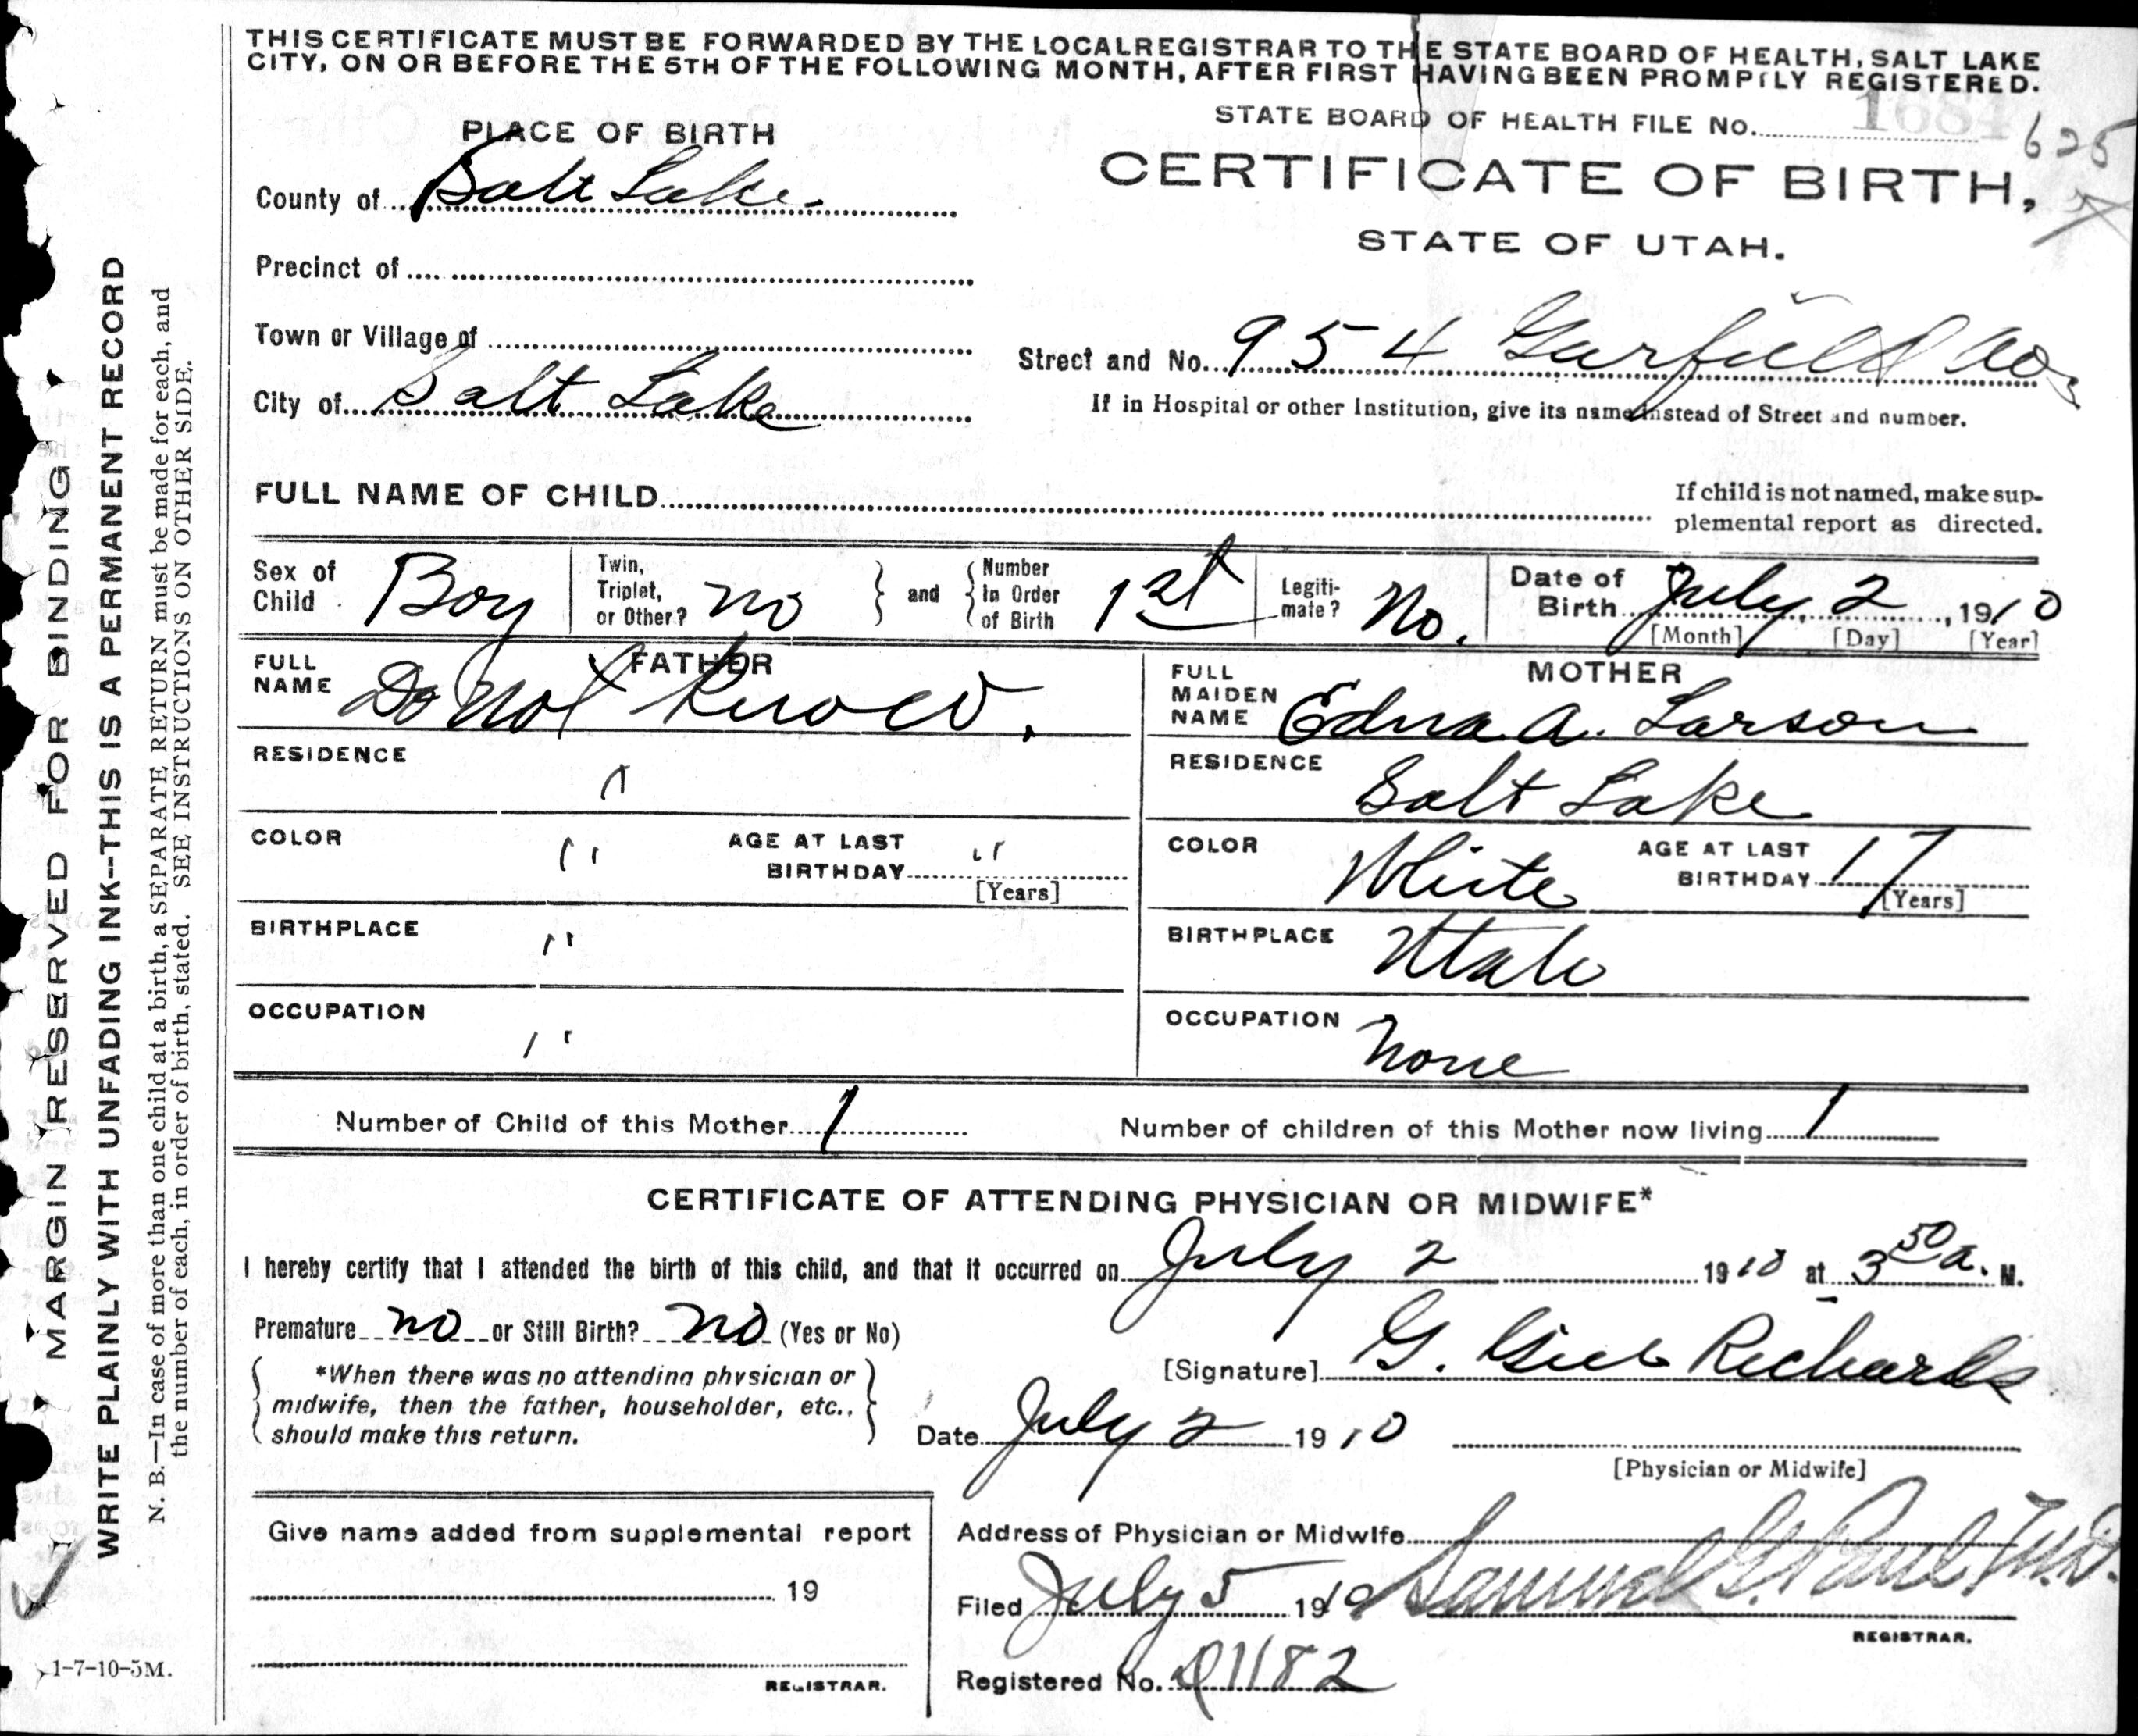 THIS CERTIFICATE MUST BE FORWARDED BY THE LOCAL REGISTRAR TO THE STATE BOARD OF HEALTH, SALT LAKE
CITY, ON OR BEFORE THE 5TH OF THE FOLLOWING MONTH, AFTER FIRST HAVING BEEN PROMPTLY REGISTERED.
STATE BOARD OF HEALTH FILE No. 1684 625
PLACE OF BIRTH
CERTIFICATE OF BIRTH,
County of Salt Lake
STATE OF UTAH.
Precinct of
Town or Village of
Street and No. 954 Garfield
City of Salt Lake
If in Hospital or other Institution, give its name instead of Street and number.
FULL NAME OF CHILD
If child is not named, make sup-
plemental report as directed.
Sex of Child Boy
Twin, Triplet, or Other? no
and
Number In Order of Birth 1st
Legiti-mate? No.
Date of Birth July 2, 1910
[Month] [Day] [Year]
FATHER
FULL NAME Do Not Know.
RESIDENCE "
COLOR " AGE AT LAST BIRTHDAY "
[Years]
BIRTHPLACE "
OCCUPATION "
MOTHER
FULL MAIDEN NAME Edna A. Larson
RESIDENCE Salt Lake
COLOR White AGE AT LAST BIRTHDAY 17
[Years]
BIRTHPLACE Utah
OCCUPATION None
Number of Child of this Mother 1 Number of children of this Mother now living 1
CERTIFICATE OF ATTENDING PHYSICIAN OR MIDWIFE*
I hereby certify that I attended the birth of this child, and that it occurred on July 2 1910 at 3 50 a. M.
Premature no or Still Birth? no (Yes or No)
[Signature] G. Richards
*When there was no attending physician or
midwife, then the father, householder, etc.,
should make this return.
Date July 2 1910
[Physician or Midwife]
Give name added from supplemental report
19
REGISTRAR.
Address of Physician or Midwife
Filed July 5 1910 Samuel G. Paul M.D.
REGISTRAR.
Registered No. 1182
MARGIN RESERVED FOR BINDING
WRITE PLAINLY WITH UNFADING INK--THIS IS A PERMANENT RECORD
N. B.—In case of more than one child at a birth, a SEPARATE RETURN must be made for each, and
the number of each, in order of birth, stated. SEE INSTRUCTIONS ON OTHER SIDE.
1-7-10-5M.